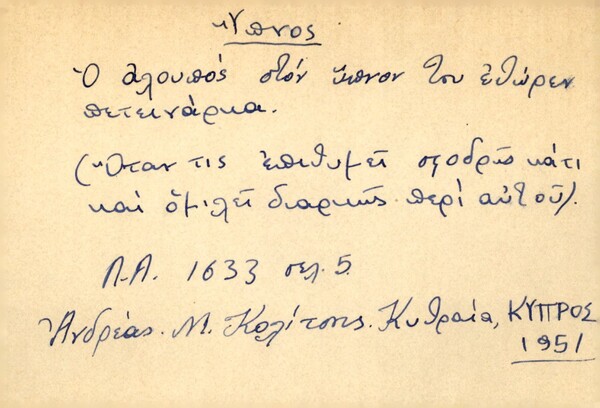 Ὕπνος
Ὁ ἀλουπός στόν ὕπνον του ἐθώρεν
πετεινάρκα.
(Ὅταν τις ἐπιθυμεῖ σφοδρῶς κάτι
καί ὁμιλεῖ διαρκῶς περί αὐτοῦ).
Λ.Α. 1633 σελ. 5.
Ἀνδρέας. Μ. Κολίτσης. Κυθραία, ΚΥΠΡΟΣ
1951